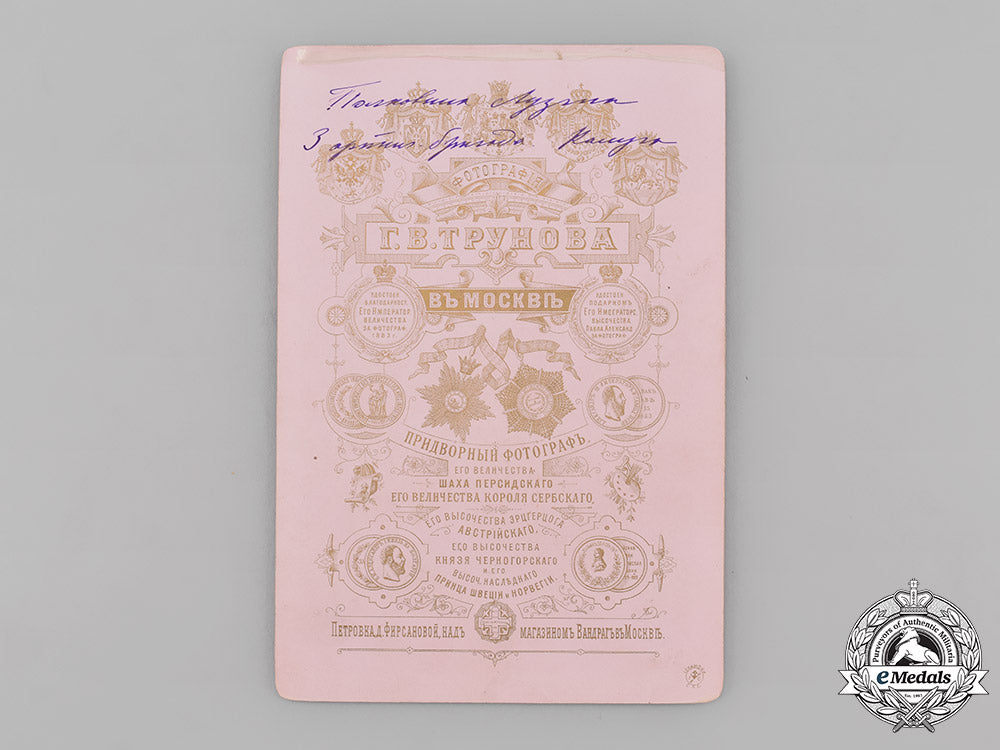 3 бригада Калуга
ФОТОГРАФІЯ
Г.В.ТРУНОВА
ВЪ МОСКВѢ
УДОСТОЕН
БЛАГОДАРНОСТ.
ЕГО ИМПЕРАТОР
ВЕЛИЧЕСТВА
ЗА ФОТОГРАФ.
1883 г.
УДОСТОЕН
ПОДАРКОМЪ
ЕГО ИМПЕРАТОРС.
ВЫСОЧЕСТВА
ПАВЛА АЛЕКСАНД
ЗА ФОТОГРАФ
ПРИДВОРНЫЙ ФОТОГРАФЪ
ЕГО ВЕЛИЧЕСТВА
ШАХА ПЕРСИДСКАГО
ЕГО ВЕЛИЧЕСТВА КОРОЛЯ СЕРБСКАГО,
ЕГО ВЫСОЧЕСТВА ЭРЦГЕРЦОГА
АВСТРІЙСКАГО,
ЕГО ВЫСОЧЕСТВА
КНЯЗЯ ЧЕРНОГОРСКАГО
И ЕГО
ВЫСОЧ. НАСЛѢДНАГО
ПРИНЦА ШВЕЦІИ И НОРВЕГІИ.
ПЕТРОВКА, Д. ФИРСАНОВОЙ, НАДЪ МАГАЗИНОМЪ ВАНДРАГЪ ВЪ МОСКВѢ.
Purveyors of Authentic Militaria
eMedals